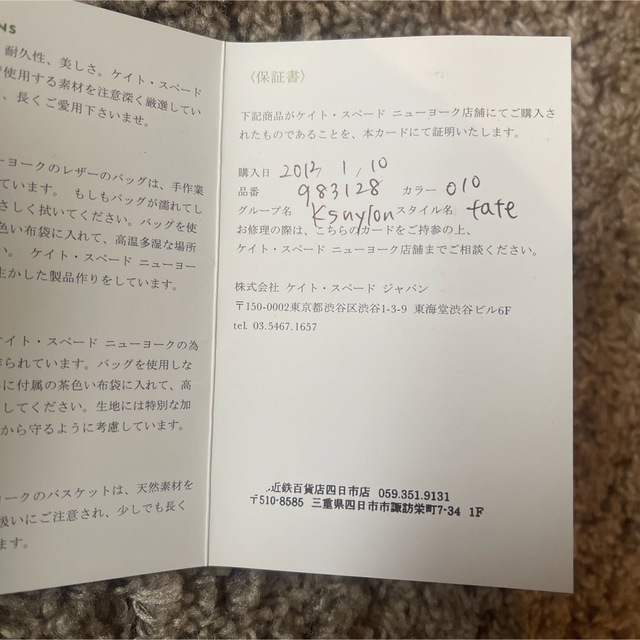 NS
耐久性、美しさ。ケイト・スペード
使用する素材を注意深く厳選してい
、長くご愛用下さいませ。
ーヨークのレザーのバッグは、手作業
ています。 もしもバッグが濡れてし
さしく拭いてください。バッグを使
色い布袋に入れて、高温多湿な場所
い。 ケイト・スペード ニューヨー
生かした製品作りをしています。
ケイト・スペード ニューヨークの為
作られています。バッグを使用しな
に付属の茶色い布袋に入れて、高
してください。生地には特別な加
から守るように考慮しています。
ヨークのバスケットは、天然素材を
扱いにご注意され、少しでも長く
ます。
〈保証書〉
下記商品がケイト・スペード ニューヨーク店舗にてご購入さ
れたものであることを、本カードにて証明いたします。
購入日 2012, 1, 10
品番 983128 カラー 010
グループ名 ksnylon スタイル名 tate
お修理の際は、こちらのカードをご持参の上、
ケイト・スペード ニューヨーク店舗までご相談ください。
株式会社 ケイト・スペード ジャパン
〒150-0002東京都渋谷区渋谷1-3-9 東海堂渋谷ビル6F
tel. 03.5467.1657
近鉄百貨店四日市店 059.351.9131
〒510-8585 三重県四日市市諏訪栄町7-34 1F